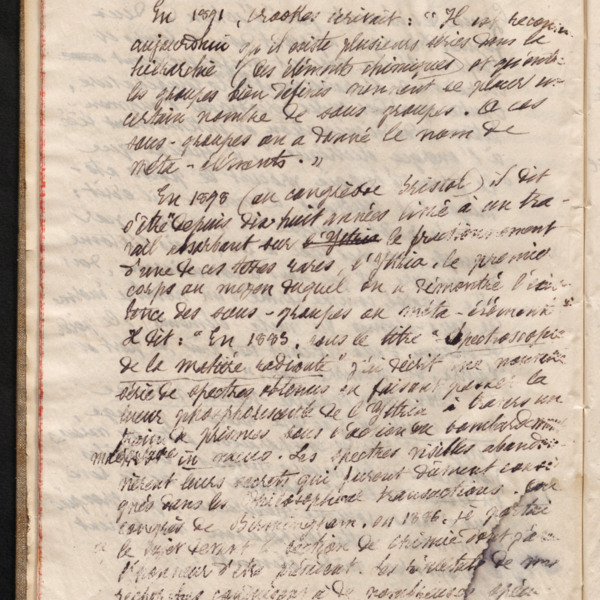 En 1891, Crookes écrivait : "Il est reconnu
aujourd'hui qu'il existe plusieurs séries dans la
hiérarchie (des éléments chimiques) et qu'entre
les groupes bien définis viennent se placer un
certain nombre de sous groupes. A ces
sous-groupes on a donné le nom de
méta-éléments."
En 1898 (au congrès de Bristol) il dit
s'être depuis dix huit années livré à un tra-
vail absorbant sur l'Yttria le fractionnement
d'une de ces terres rares, l'Yttria, le premier
corps au moyen duquel on a démontré l'exis-
tence des sous-groupes ou méta-éléments
Il dit : "En 1883, sous le titre "Spectroscopie
de la matière radiante" j'ai décrit une nouvelle
série de spectres obtenus en faisant passer la
lueur phosphorescente de l'Yttria à travers un
train de prismes sous l'action du bombardement
moléculaire in vacuo. Les spectres visibles abandon-
nèrent leurs secrets qui furent dûment consi-
gnés dans les Philosophical transactions. Au
congrès de Birmingham, en 1886, je
ce sujet devant la section de chimie dont j'avais
l'honneur d'être président. Les résultats de mes
recherches de nombreuses